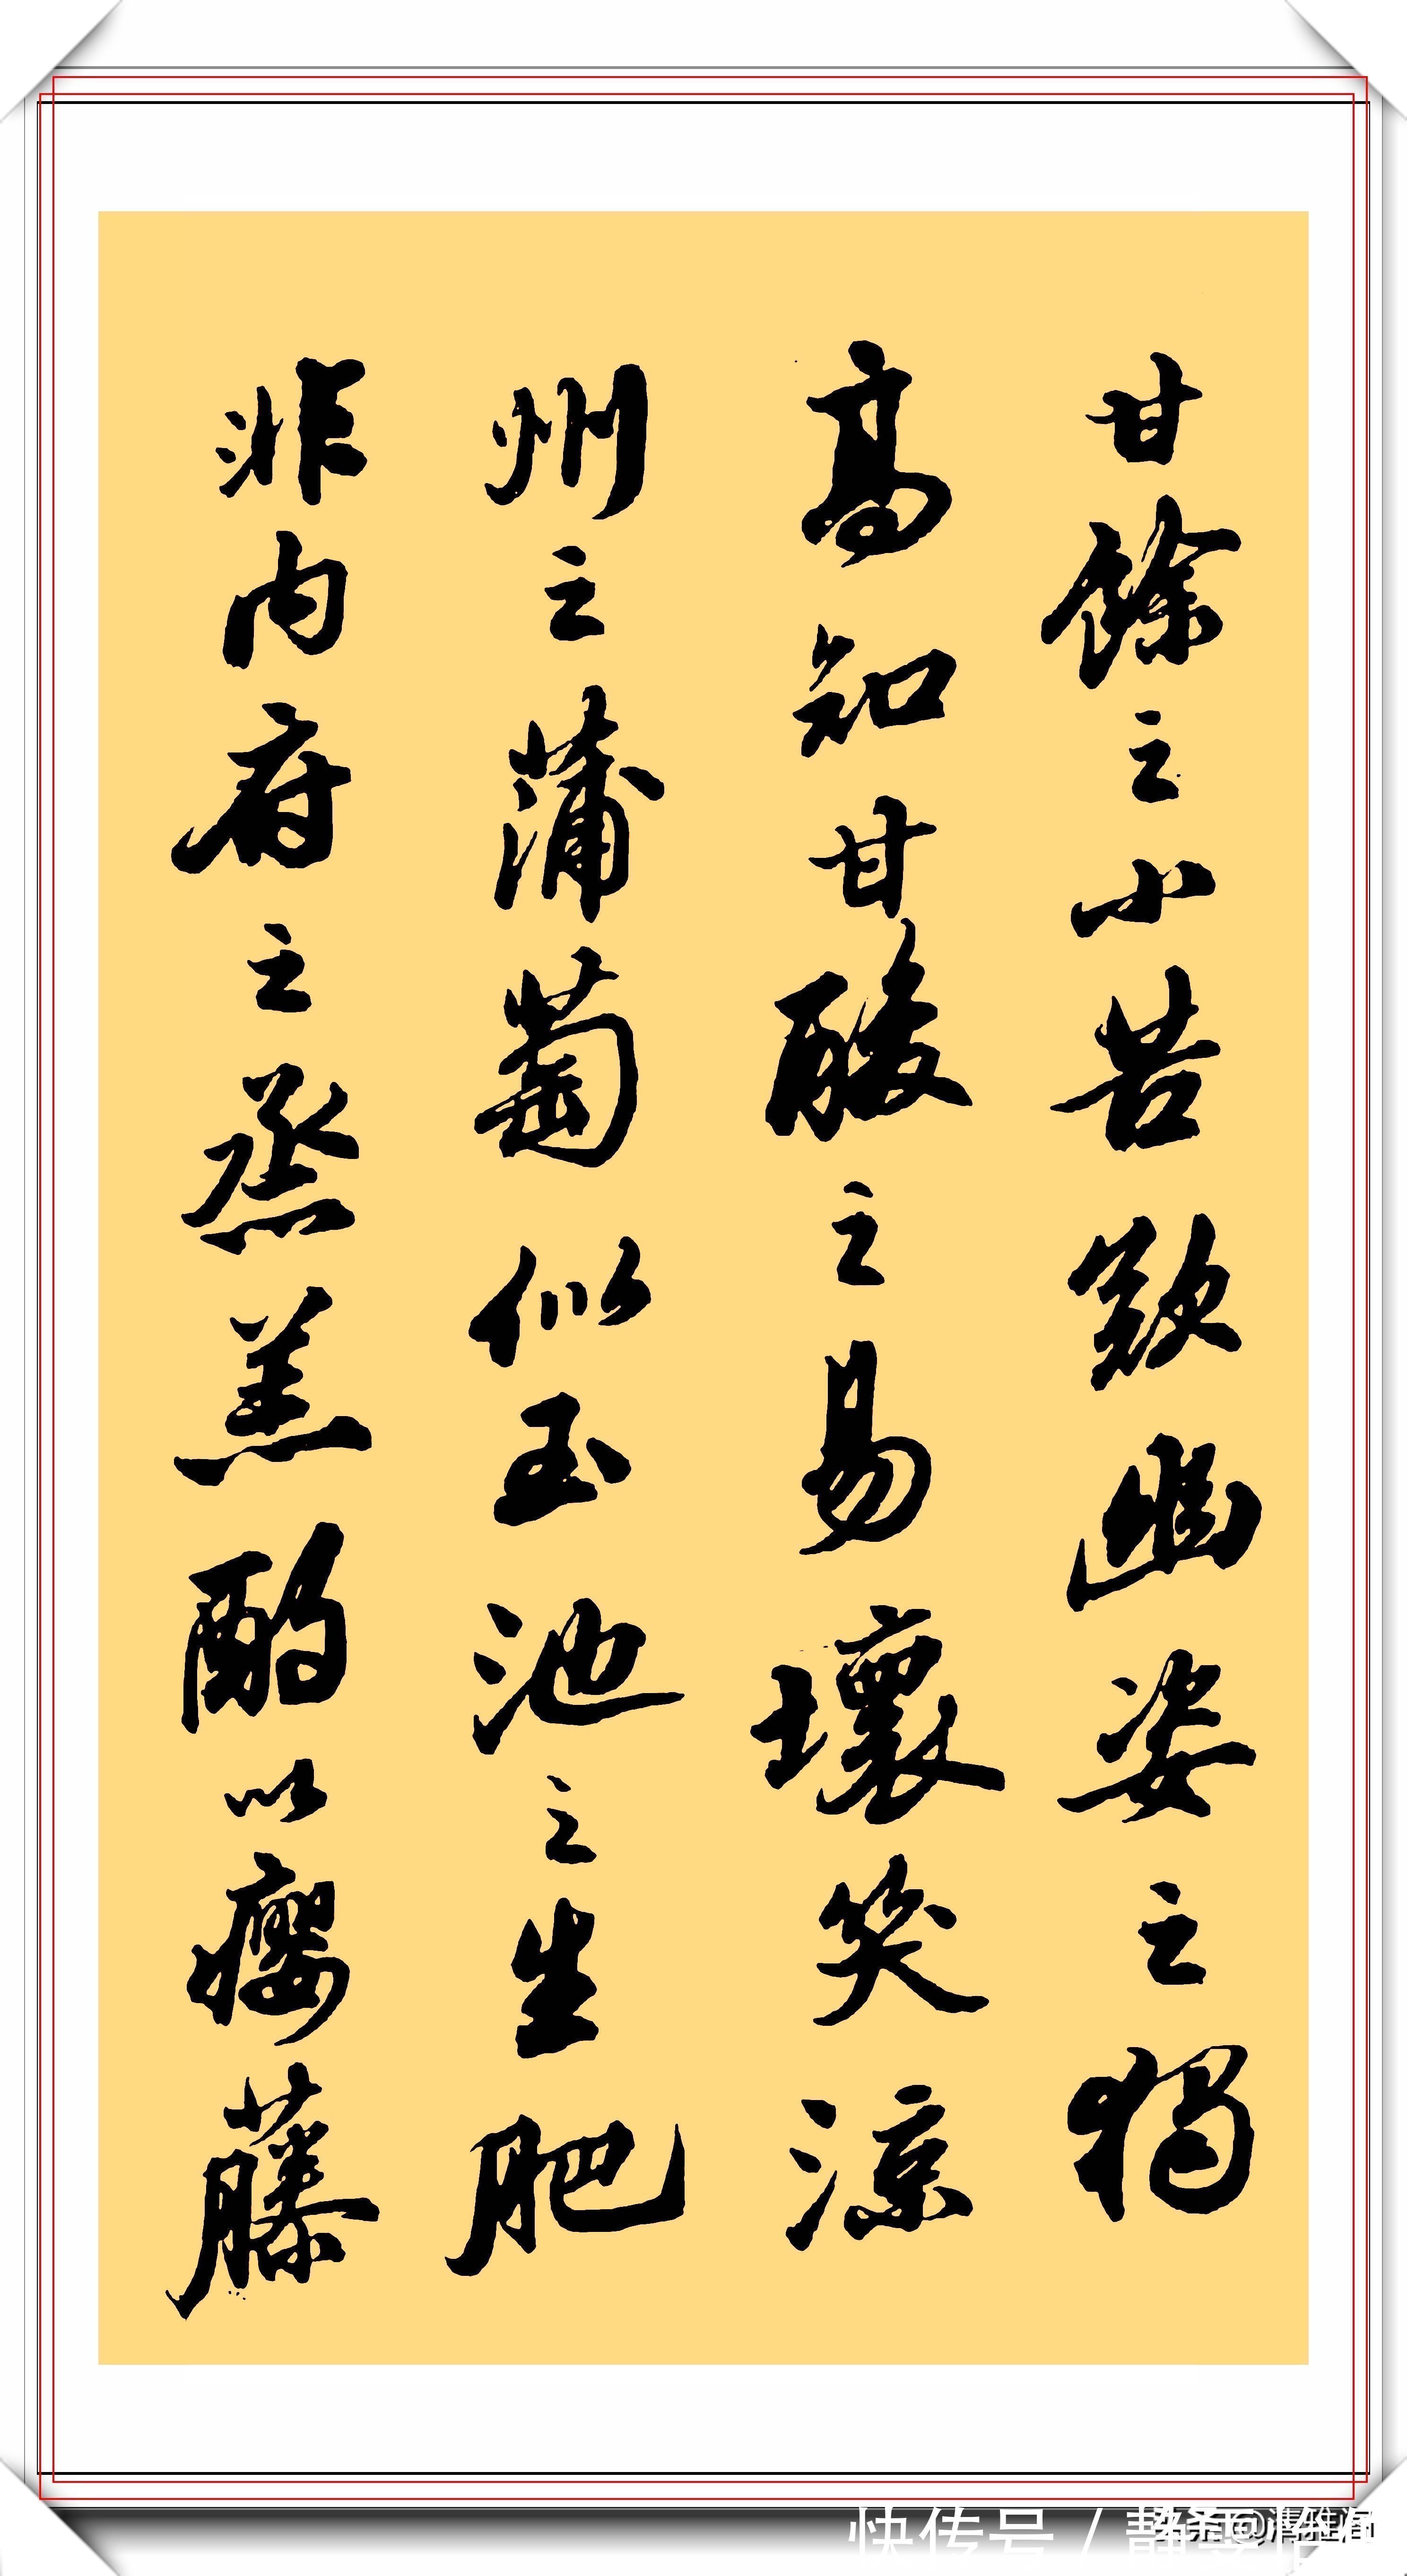 甘餘之小苦歎幽姿之獨
高知甘酸之易壞笑涼
州之蒲萄似玉池之生肥
非内府之烝羔酌以癭藤
快传号 /